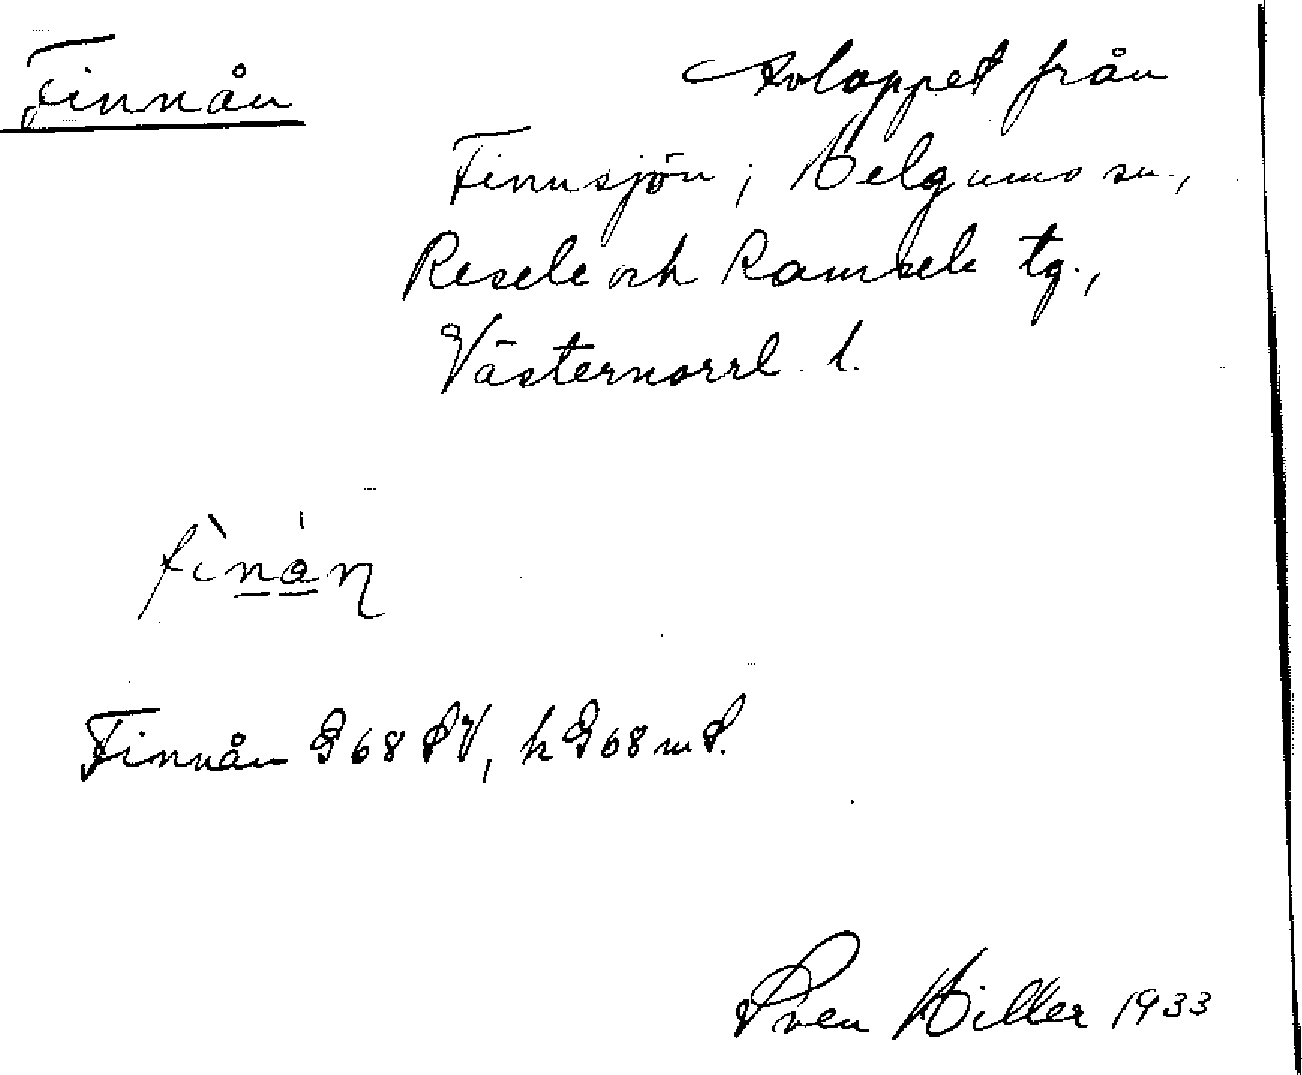 Finnån
Avloppet från
Finnsjön, Helgums sn.,
Resele och Ramsele tg.,
Västernorrl. l.
fìnán
Finnån G 68 SV, k G 68 m S.
Sven Hiller 1933